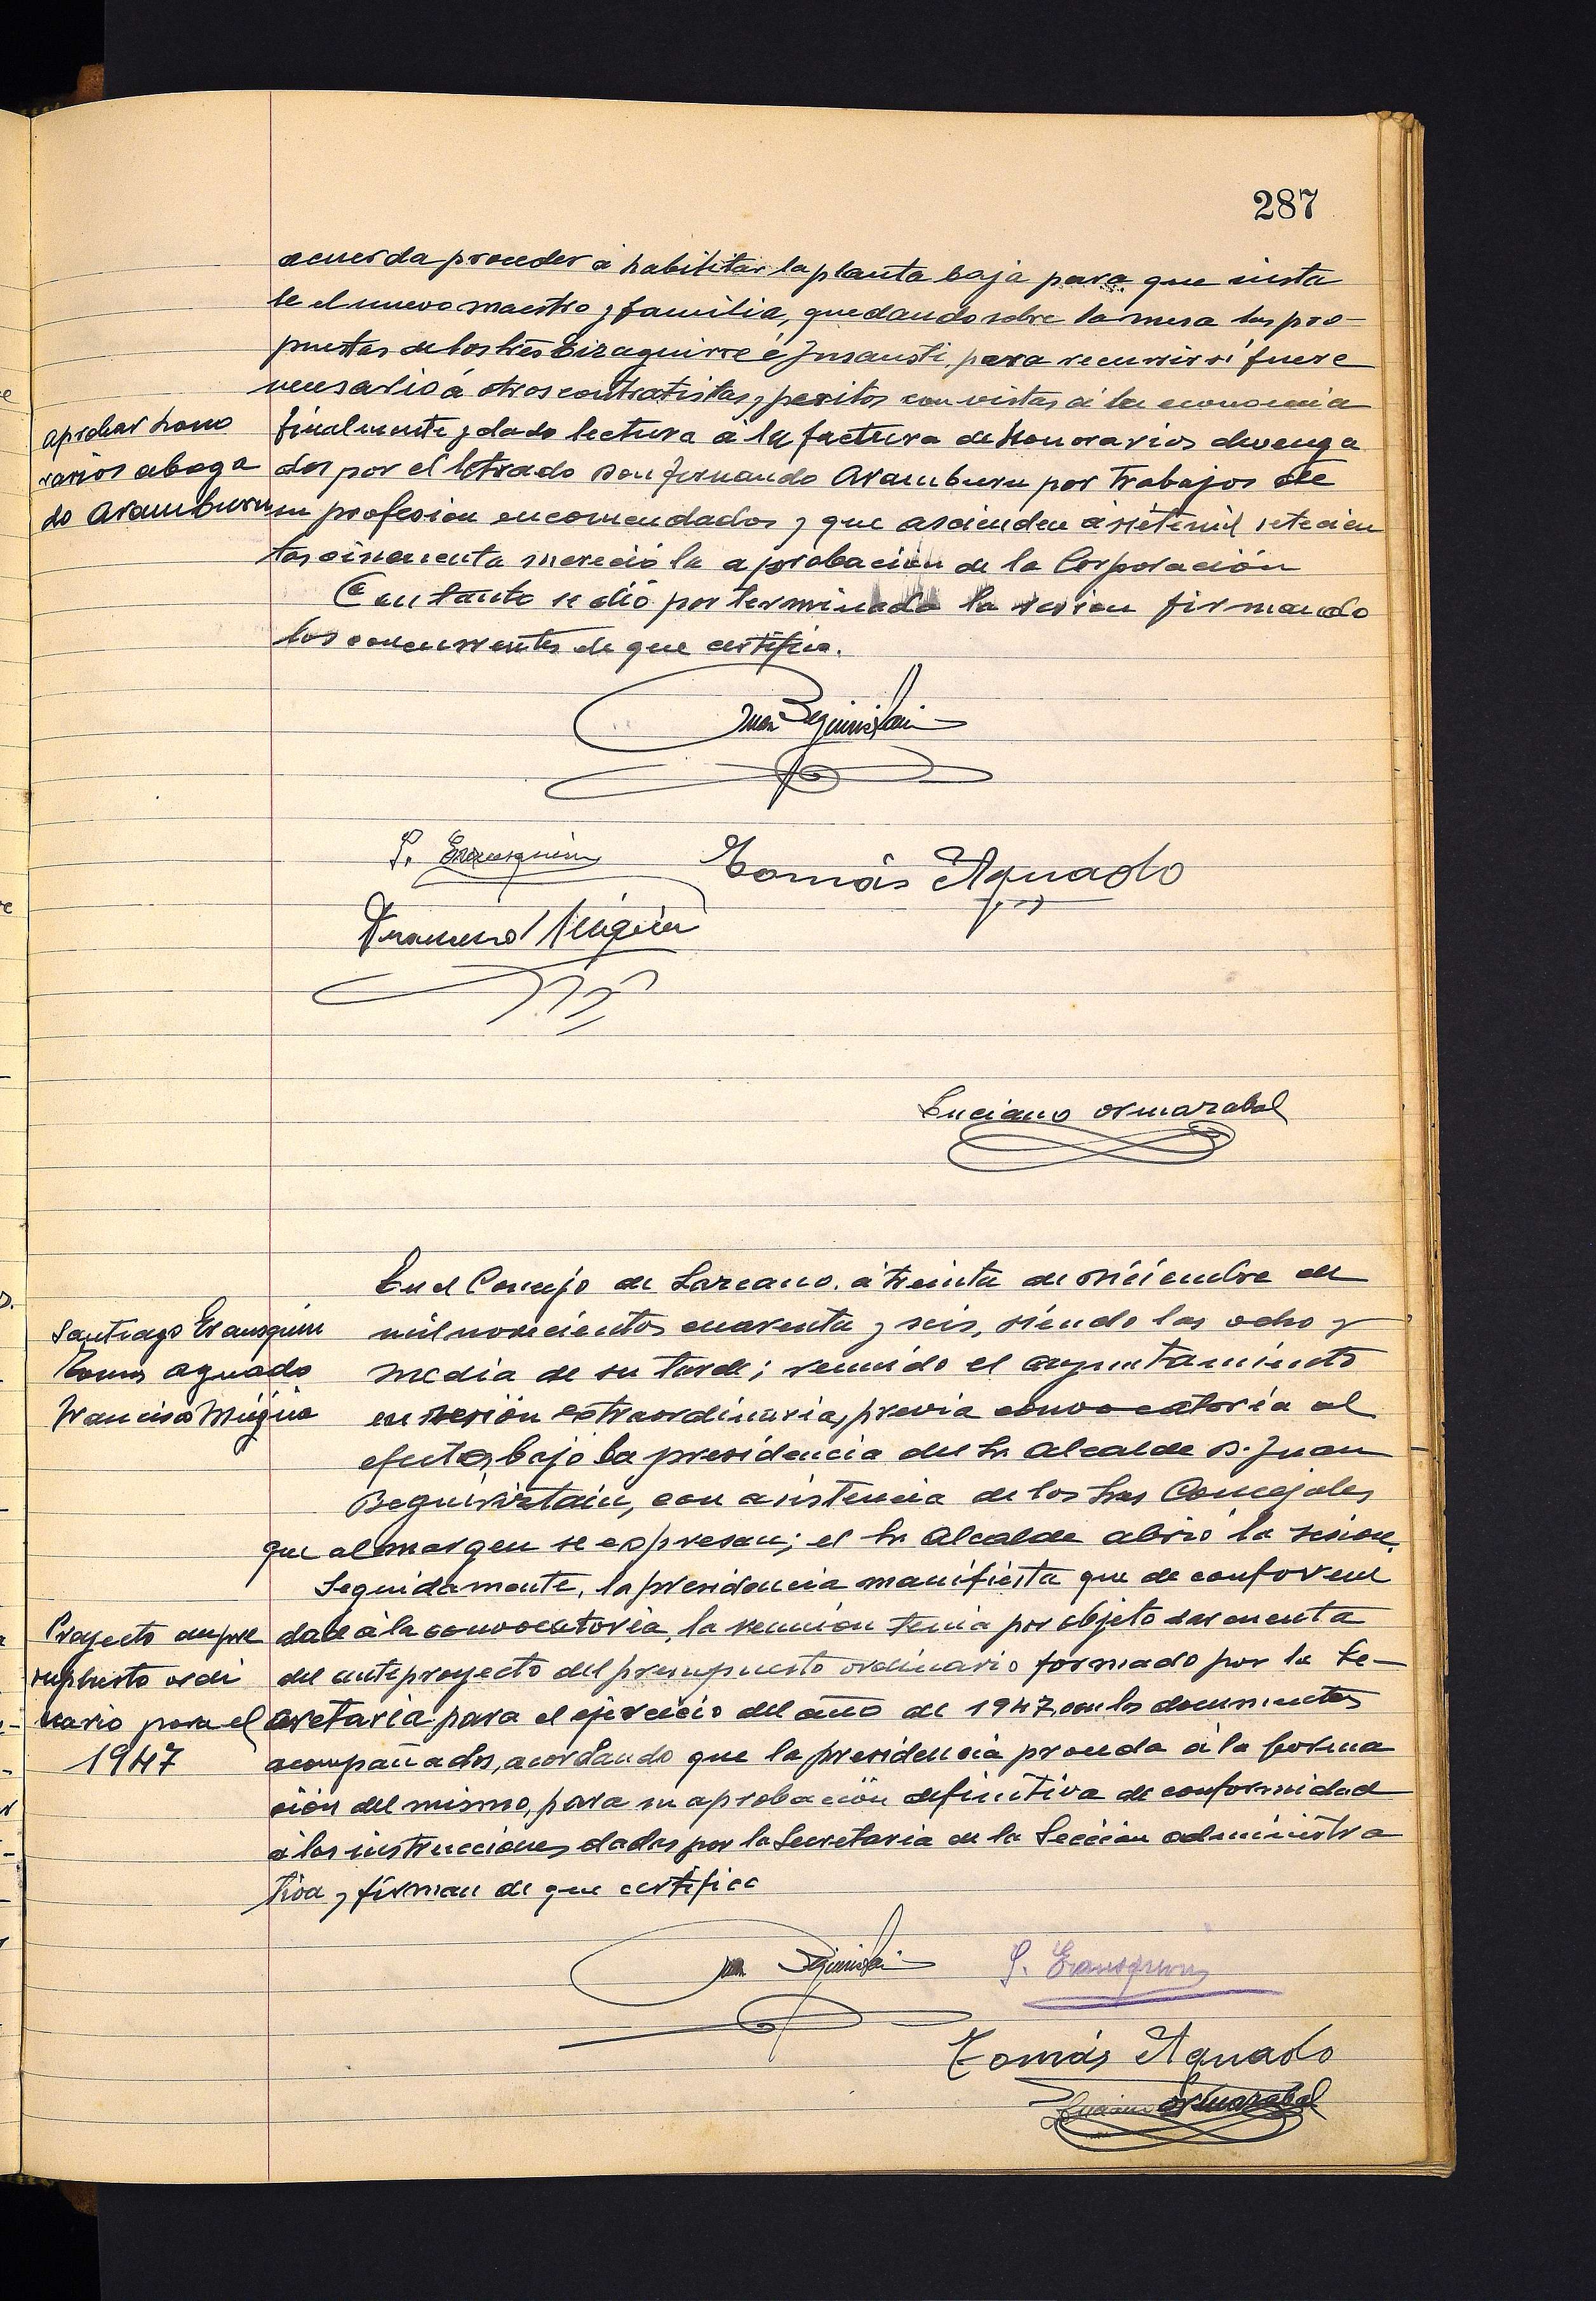 287
acuerda proceder a habilitar la planta baja para que insta
le el nuevo maestro y familia, quedando sobre la mesa las pro-
puestas de los tres Eizaguirre é Insausti, para recurrir si fuere
necesario á otros contratistas y peritos con vistas á la economia
aprobar hono
rarios aboga
do Aramburu
finalmente y dado lectura a la factura de honorarios devenga
dos por el letrado Don Fernando Aramburu por trabajos de
su profesion encomendados y que ascienden á siete mil setecien
tas cincuenta mereció la aprobación de la Corporación
En tanto se dió por terminada la sesion firmando
los concurrentes de que certifico.
Juan Beguiristain
S. Erausquin
Tomás Aguado
Francisco Múgica
Luciano Ormazabal
En el Concejo de Lazcano, á treinta de Diciembre de
Santiago Erausquin
Tomas Aguado
Francisco Múgica
mil novecientos cuarenta y seis, siendo las ocho y
media de su tarde; reunido el ayuntamiento
en sesión extraordinaria, previa convocatoria al
efecto, bajo la presidencia del Sr. Alcalde D. Juan
Beguiristain, con asistencia de los Sres Concejales
que al margen se expresan; el Sr Alcalde abrió la sesion.
Seguidamente, la presidencia manifiesta que de conformi
Proyecto de pre
supuesto ordi
nario para el
1947
dad á la convocatoria, la reunion tenia por objeto dar cuenta
del anteproyecto del presupuesto ordinario formado por la Se-
cretaria para el ejercicio del año de 1947, con los documentos
acompañados, acordando que la presidencia proceda á la forma
ción del mismo, para su aprobación definitiva de conformidad
á las instrucciones dadas por la Secretaria de la Sección administra
tiva y firman de que certifico
Juan Beguiristain
S. Erausquin
Tomás Aguado
Luciano Ormazabal